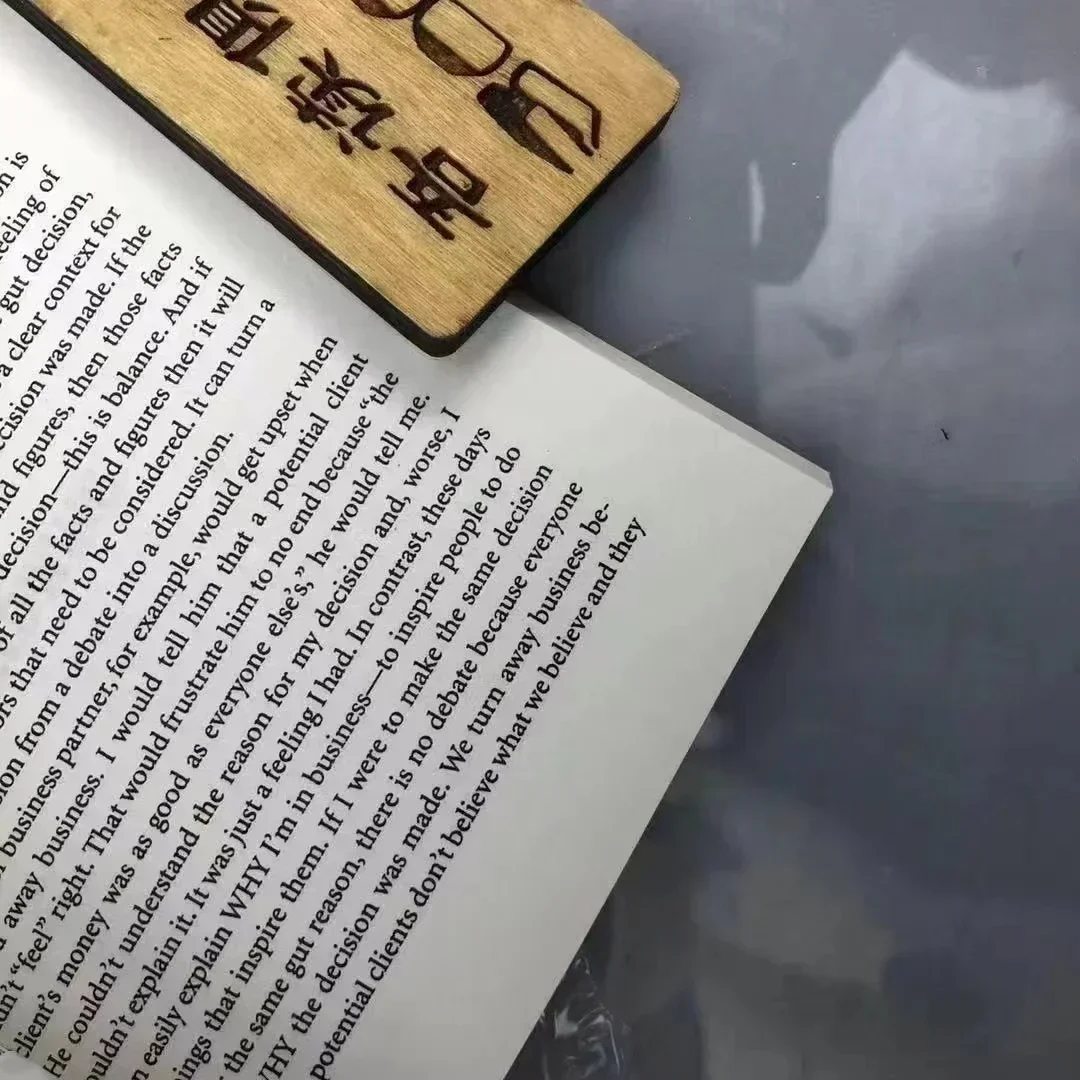 吾读
on is
feeling of
gut decision,
a clear context for
decision was made. If the
and figures, then those facts
decision—this is balance. And if
of all the facts and figures then it will
that need to be considered. It can turn a
from a debate into a discussion.
business partner, for example, would get upset when
away business. I would tell him that a potential client
"feel" right. That would frustrate him to no end because "the
client's money was as good as everyone else's," he would tell me.
He couldn't understand the reason for my decision and, worse, I
couldn't explain it. It was just a feeling I had. In contrast, these days
easily explain WHY I'm in business—to inspire people to do
things that inspire them. If I were to make the same decision
the same gut reason, there is no debate because everyone
WHY the decision was made. We turn away business be-
potential clients don't believe what we believe and they